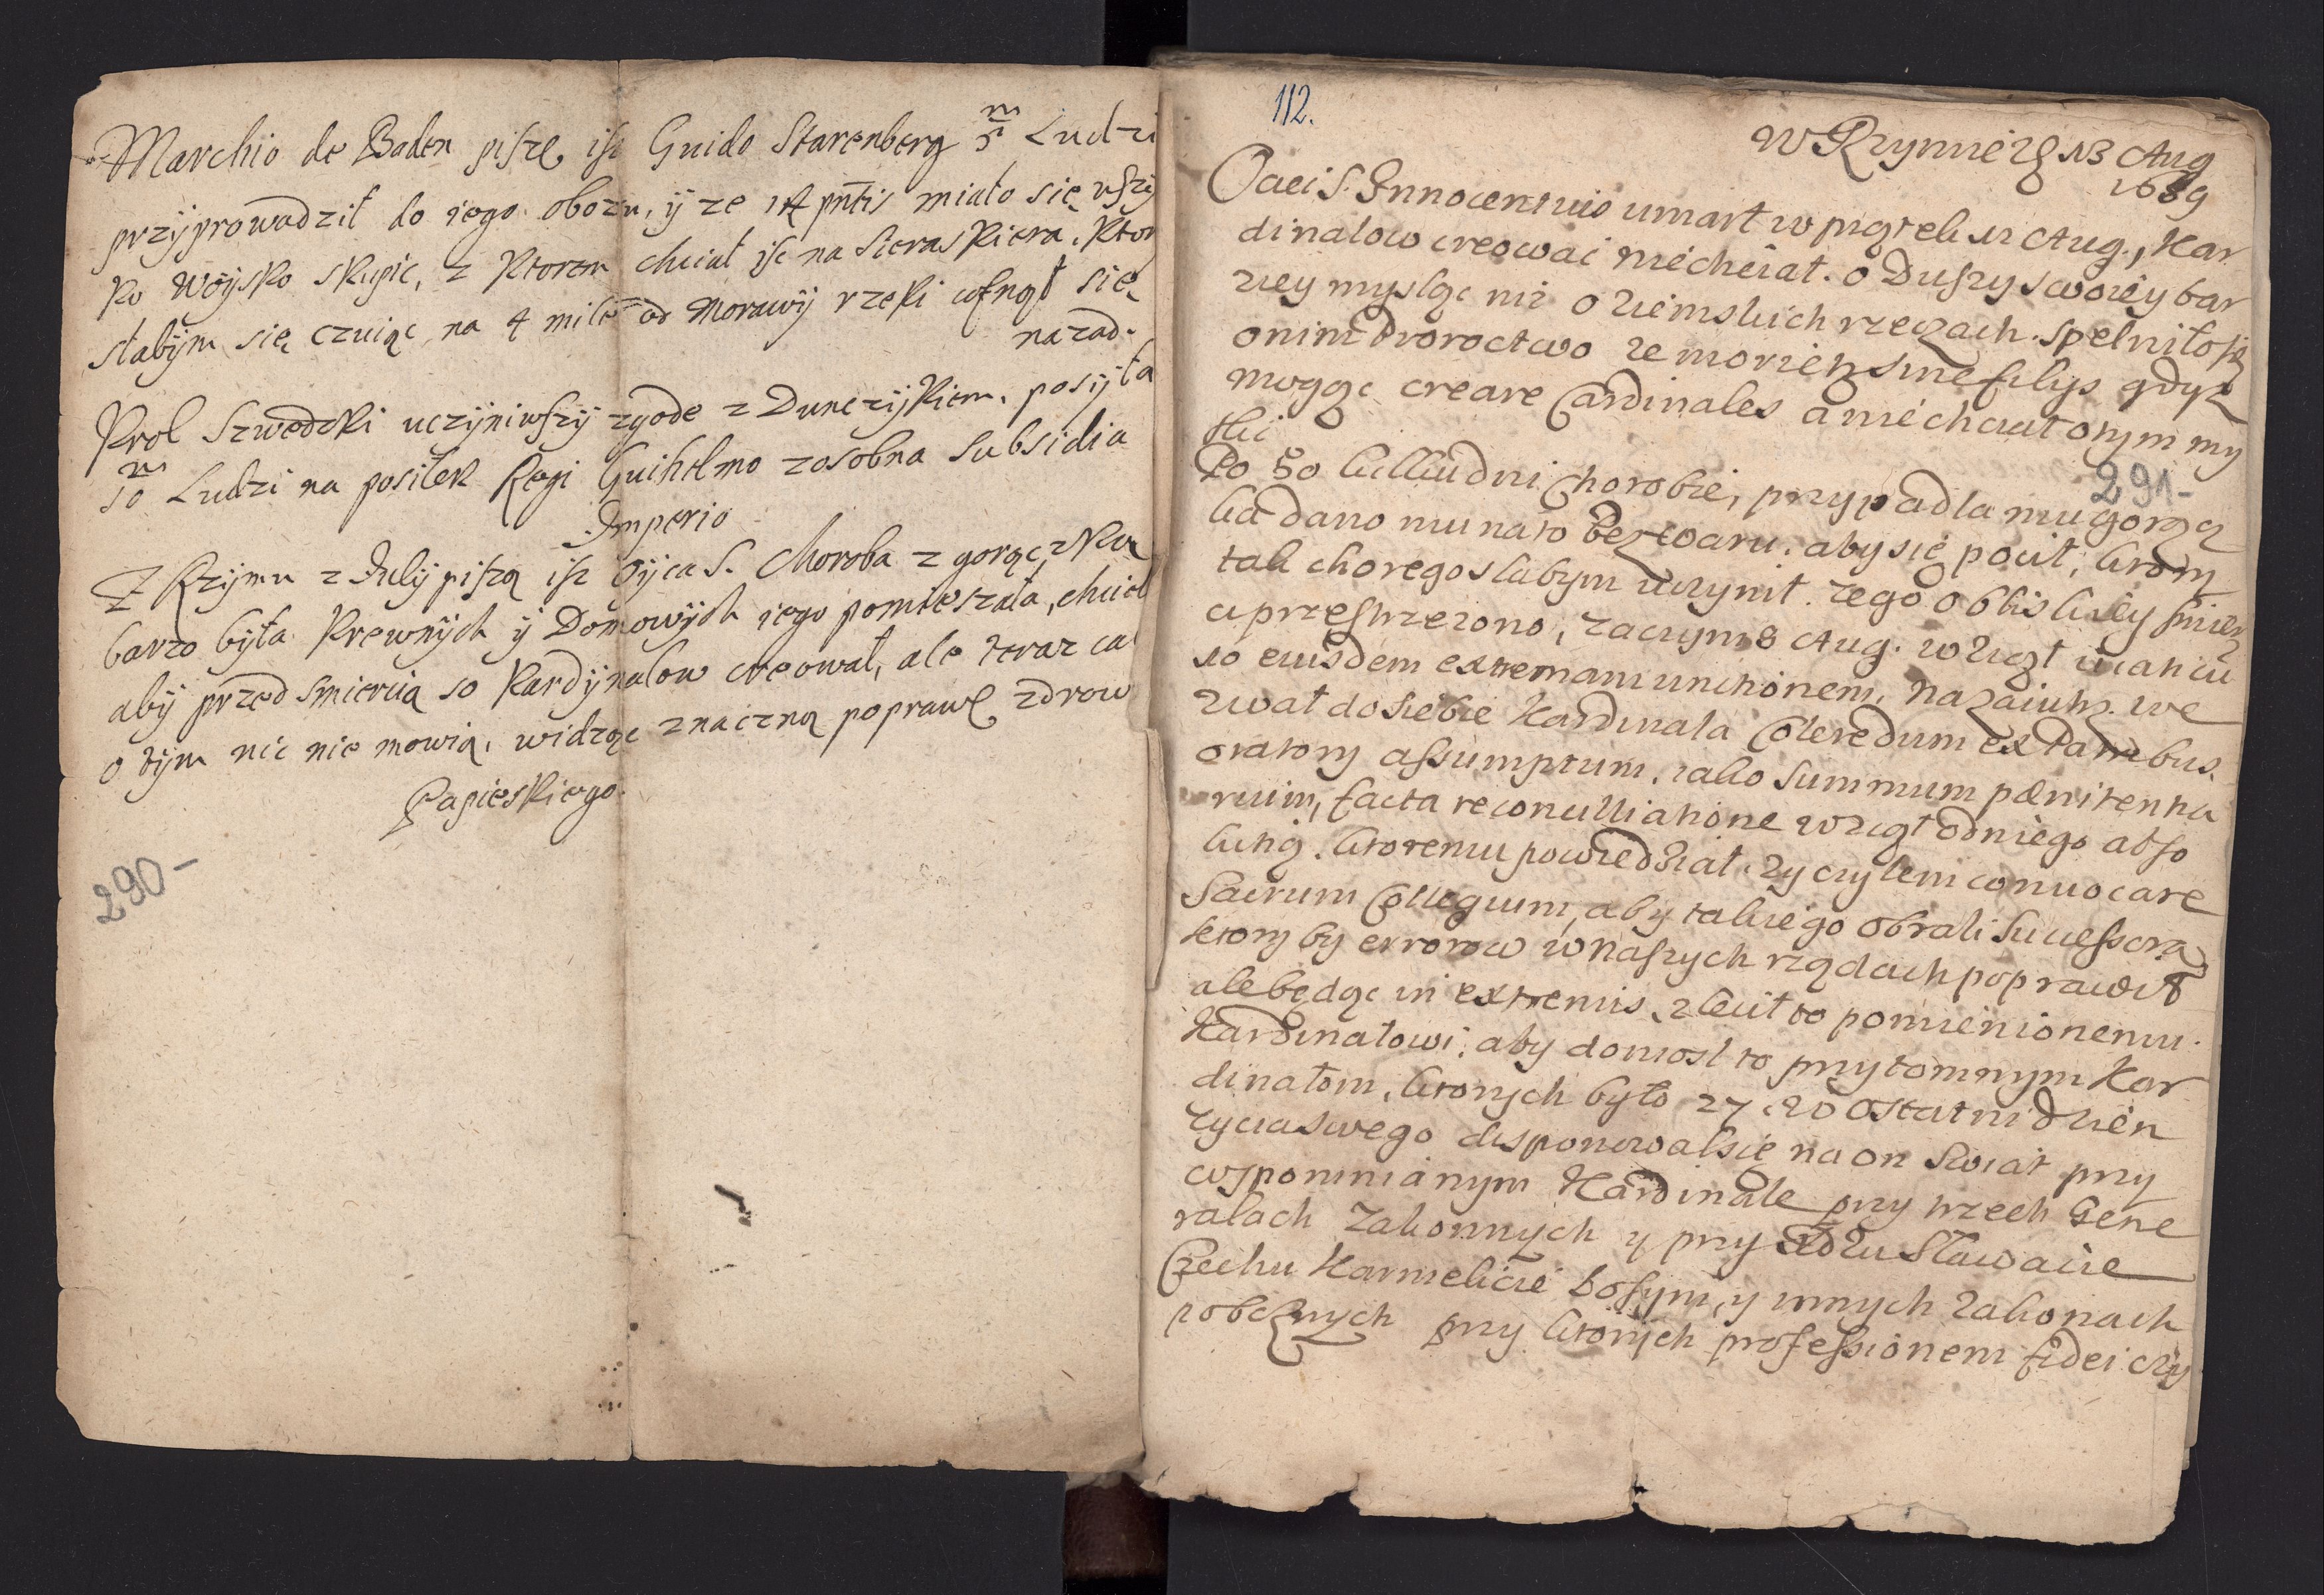 Marchio de Baden pisze isz Guido Starenberg 5 m Ludzi
przyprowadził do iego obozu, y ze 14 pntis miało się wszÿ
ko Woÿsko skupic, z Ktorem chciał isc na Seraskiera, Ktor
słabÿm się czuiąc na 4 mile od Morawÿ rzeki cofnął się
nazad.
Krol Szwedzki uczÿniwszÿ zgode z Dunczÿkiem, posÿła
10 m Ludzi na posiłek Regi Guihelmo zosobna Subsidia
Imperio
Z Rzÿmu z Julÿ piszą isz Oÿca S. Choroba z gorączką
barzo była Krewnÿch ÿ Domowÿch iego pomieszała, chciel
abÿ przed smiercią 10 Kardÿnałow creował, ale teraz ca
o tÿm nic nie mowią, widząc znaczną poprawę zdrow
Papieskiego.
290-
112.
W Rzymie 13 Aug
1689
Ociec S. Innocentius umarł w piątek 12 Aug., Kar
dinałow creowac niechciał. o Duszy swoiey bar
ziey mysląc niz o ziemskich rzeczach. spełniło się
onim Proroctwo ze moriens sine filys gdyz
mogąc creare Cardinales a niechciał onym my
slic
291-
Po 50 kilkudni chorobie, przypadła mu gorącz
ka dano mu nato Bezwaru. aby się pocił, ktory
tak chorego słabym uczynił. Tego o bliskiey smierci
uprzestrzezono, zaczym 8 Aug. wziął viaticu
10 eiusdem extremam unctionem, nazaiutrz we
zwał do siebie Kardinała Coleredum ex Patribus
oratory assumptum, iako summum pænitentia
rium, facta reconcilliatione wziął odniego abso
lutią. ktoremu powiedział, zyczyłem conuocare
Sacrum Collegium, aby takiego obrali Successora
ktory by errorow w naszych rządach poprawił
ale będąc in extremis, zlecił to pomienionemu
Kardinałowi, aby doniosł to przytomnym Kar
dinałom, ktorych było 27. W Ostatni dzien
zycia swego disponował się na on Swiat przy
wspomnianym Kardinale przy trzech Gene
rałach Zakonnych y przy Xdzu Sławacie
Czechu Karmelicie bosym, y innych Zakonach
pobcznych przy ktorych professionem fidei czy